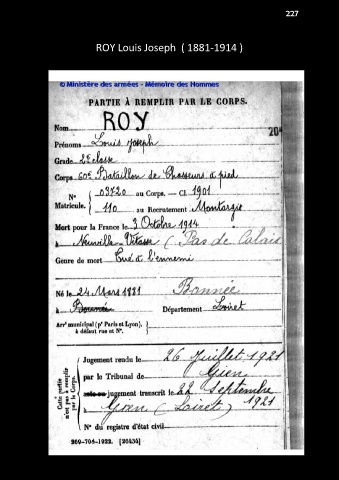 227
ROY Louis Joseph ( 1881-1914 )
© Ministère des armées - Mémoire des Hommes
PARTIE À REMPLIR PAR LE CORPS.
Nom ROY 20
Prénoms Louis Joseph
Grade 2e classe
Corps 60e Bataillon de Chasseurs à pied
N° Matricule. { 03720 au Corps. — Cl 1901
110 au Recrutement Montargis
Mort pour la France le 3 Octobre 1914
à Neuville-Vitasse (Pas de Calais
Genre de mort Tué à l'ennemi
Né le 24 Mars 1881 Bonnée
à Bonnée Département Loiret
Arrt municipal (pr Paris et Lyon), à défaut rue et N°. }
Cette partie n'est pas à remplir par le Corps.
Jugement rendu le 26 Juillet 1921
par le Tribunal de Gien
jugement transcrit le 22 Septembre
à Gien (Loiret) 1921
N° du registre d'état civil
269-708-1922. [26434]